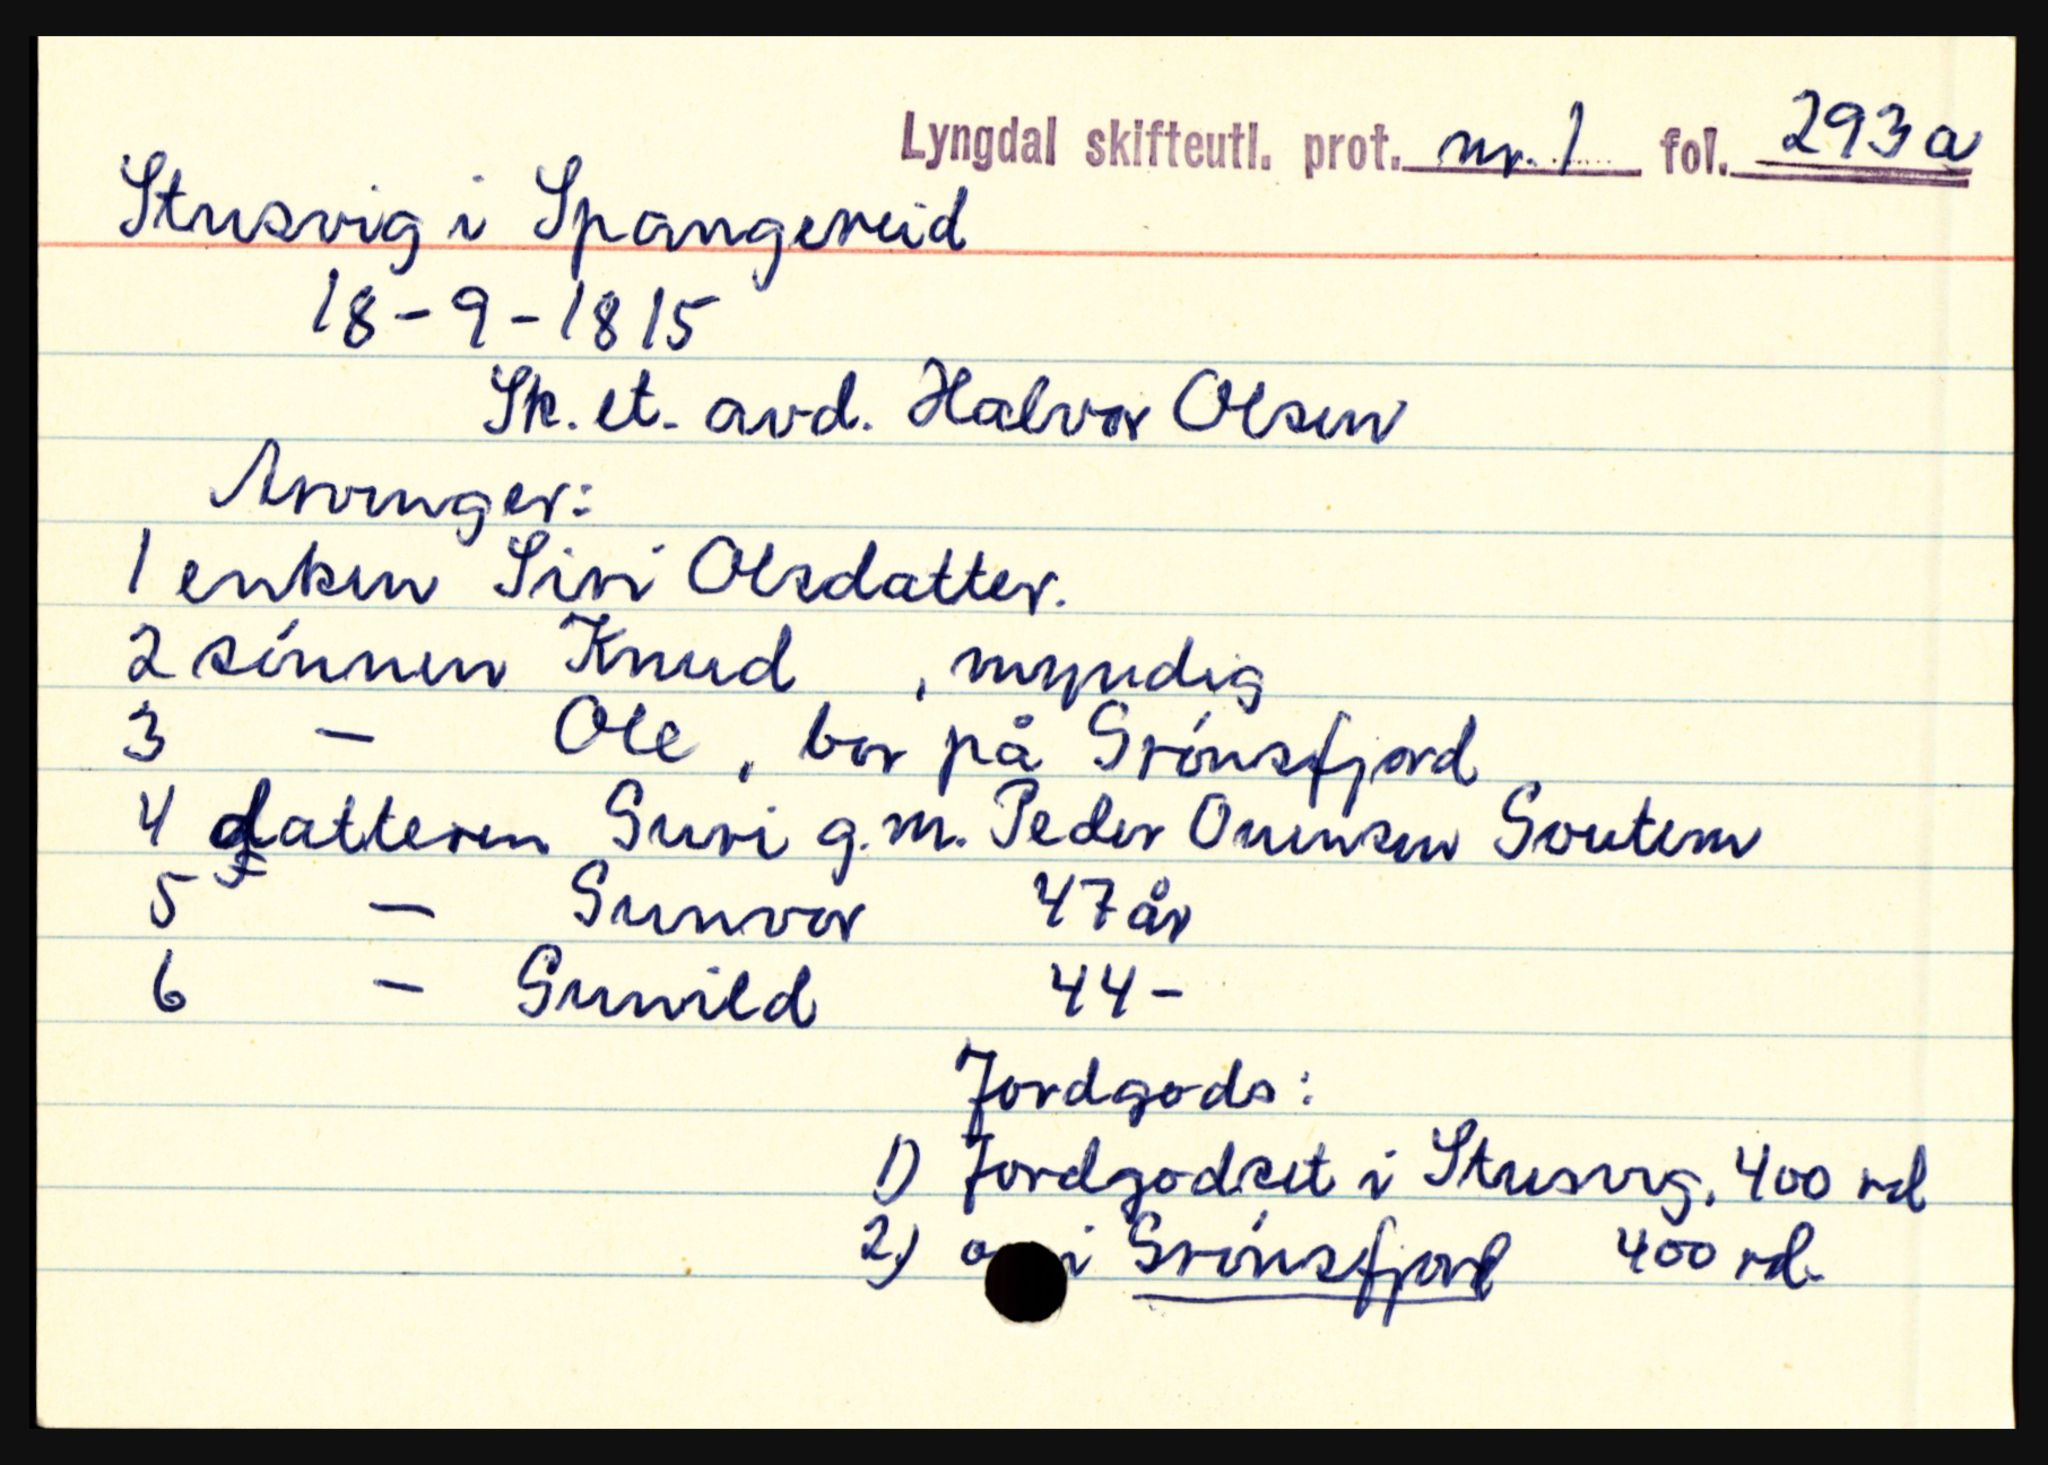 Lyngdal skifteutl. prot. nr. 1 fol. 293a
Stusvig i Spangereid
18-9-1815
Sk. et. avd. Halvor Olsen
Arvinger:
1 enken Siri Olsdatter.
2 sønnen Knud , myndig
3 - Ole , bor på Grønsfjord
4 datteren Guri g.m. Peder Ouensen
5 - Gunvor 47 år
6 - Gunild 44 -
Jordgods:
1) Jordgodset i Stusvig, 400 rd
2) i Grønsfjord 400 rd.